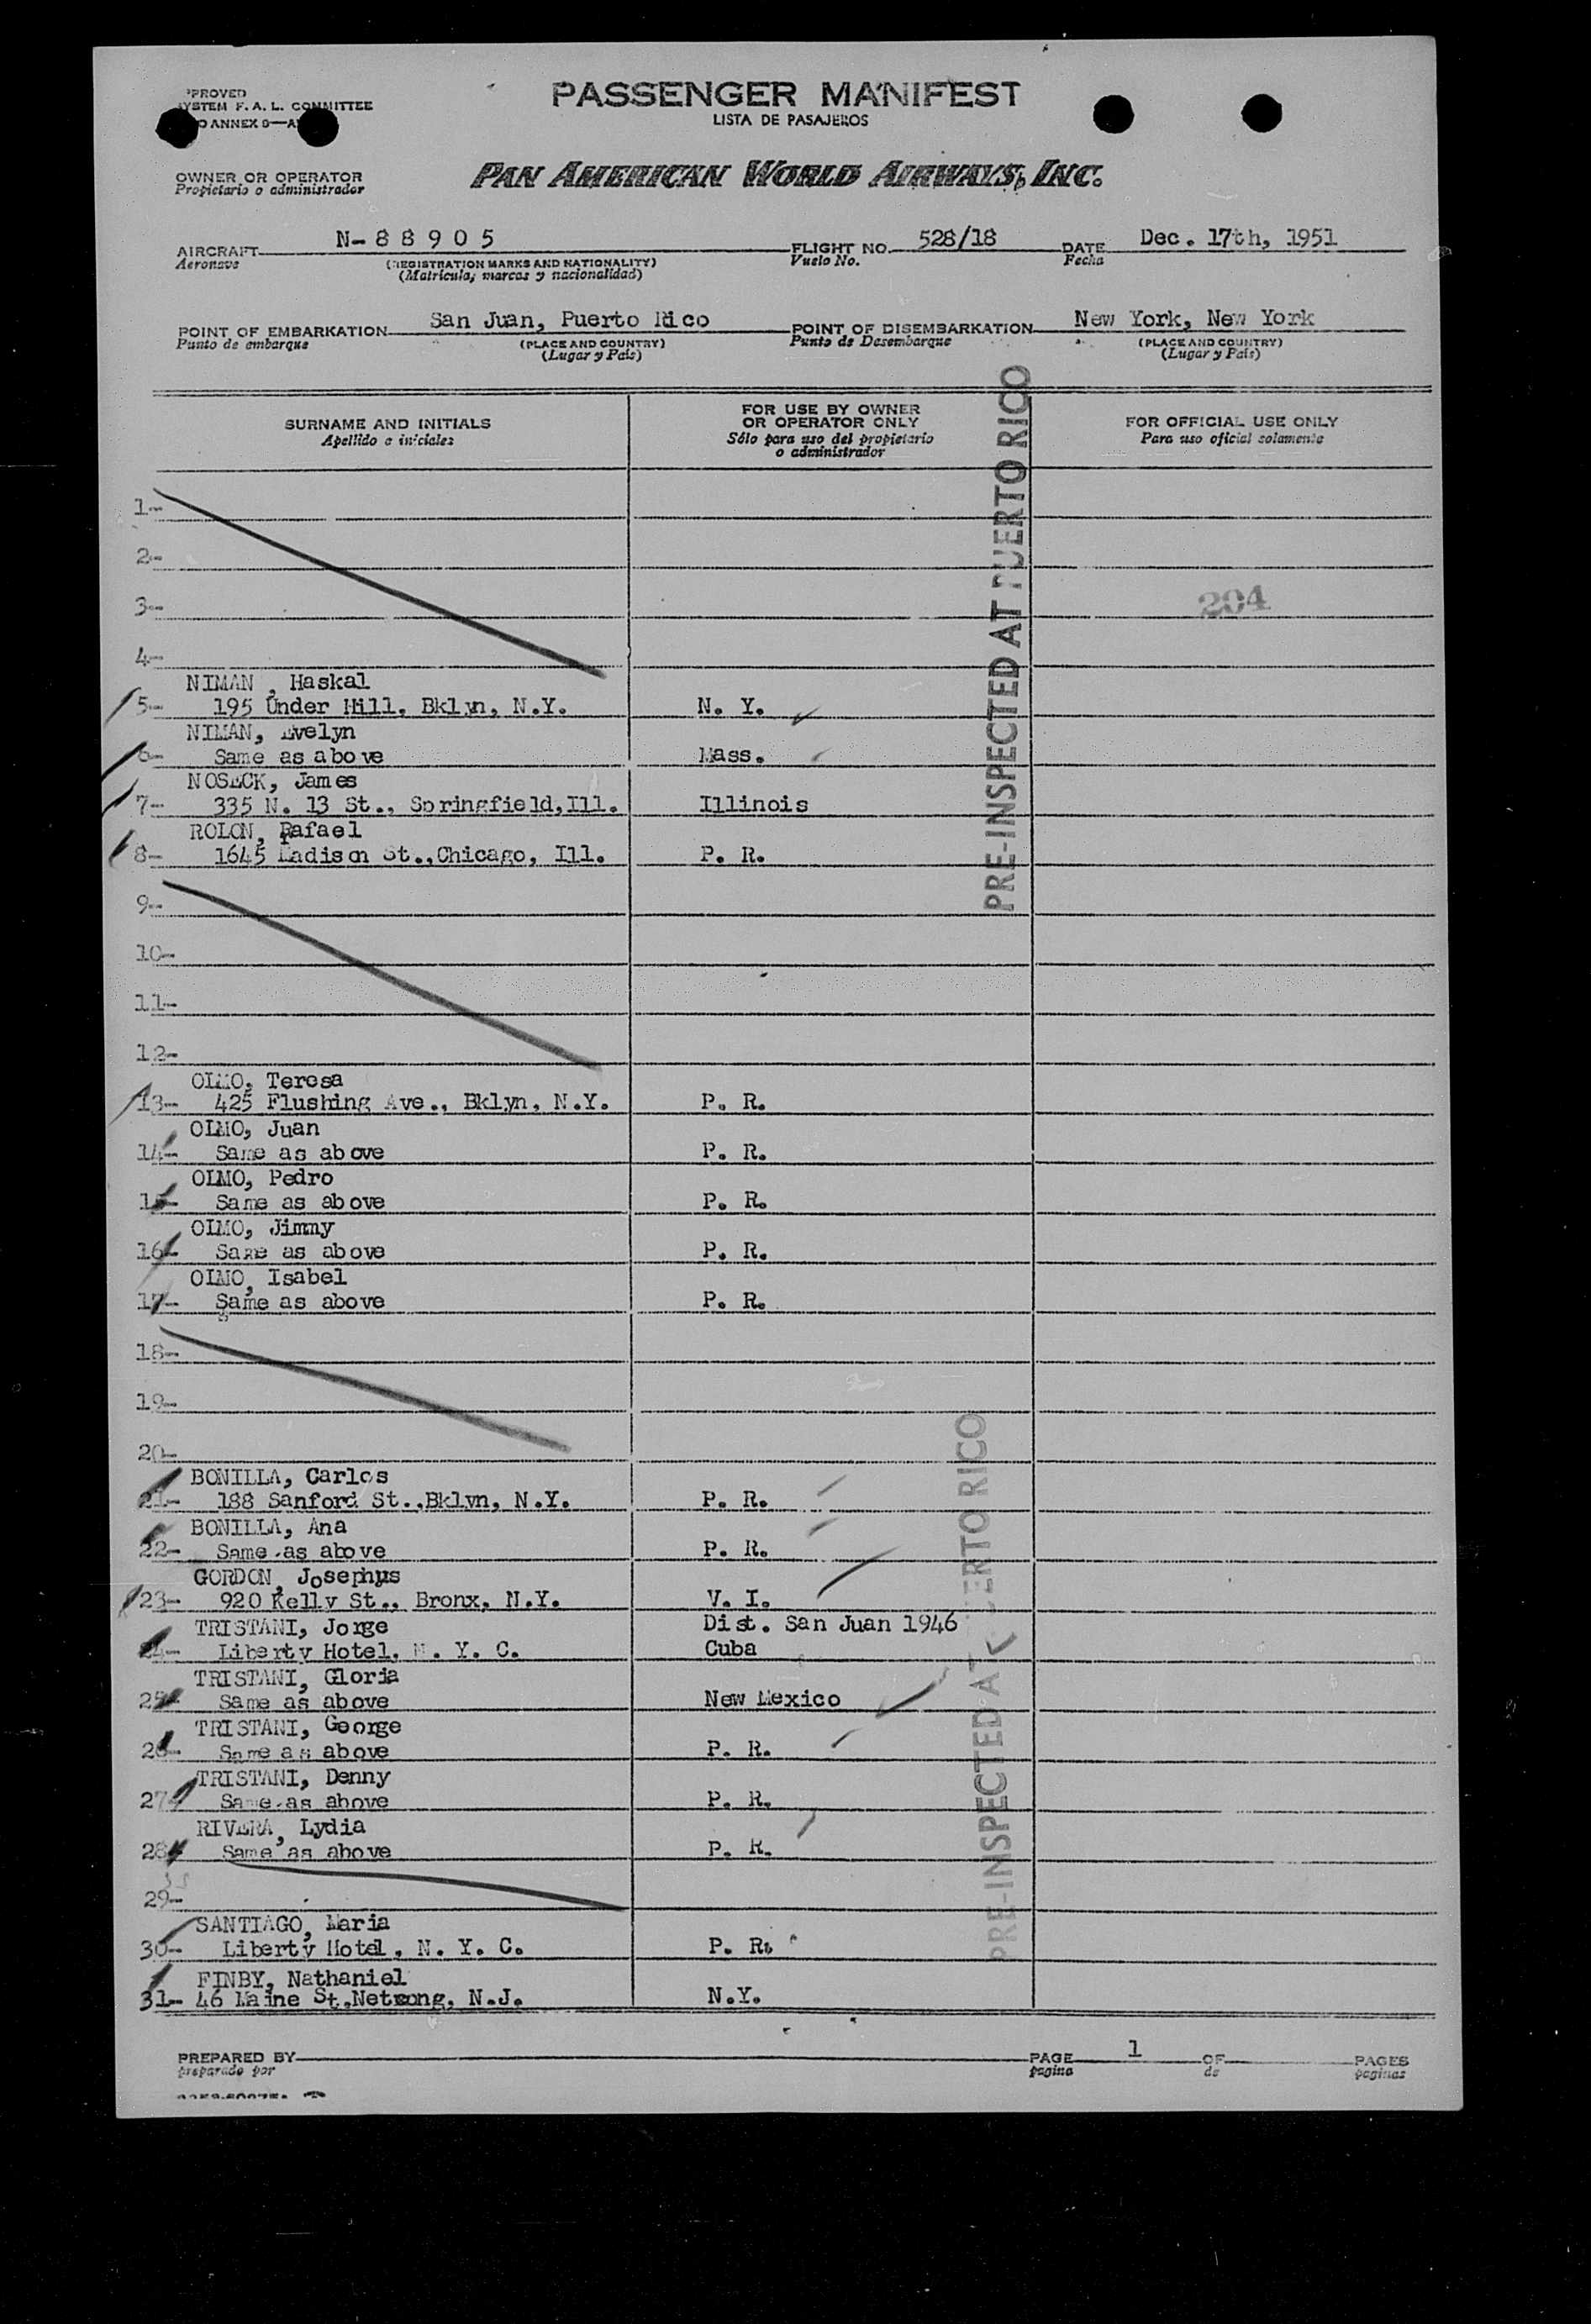 PASSENGER MANIFEST
LISTA DE PASAJEROS
PROVED
SYSTEM F. A. L. COMMITTEE
ANNEX 9—A
OWNER OR OPERATOR
Propietario o administrador
PAN AMERICAN WORLD AIRWAYS, INC.
AIRCRAFT N-88905 FLIGHT NO. 528/18 DATE Dec. 17th, 1951
Aeronave (REGISTRATION MARKS AND NATIONALITY) Vuelo No. Fecha
(Matricula, marcas y nacionalidad)
POINT OF EMBARKATION San Juan, Puerto Rico POINT OF DISEMBARKATION New York, New York
Punto de embarque (PLACE AND COUNTRY) Punto de Desembarque (PLACE AND COUNTRY)
(Lugar y País) (Lugar y País)
SURNAME AND INITIALS
Apellido e iniciales
FOR USE BY OWNER
OR OPERATOR ONLY
Sólo para uso del propietario
o administrador
FOR OFFICIAL USE ONLY
Para uso oficial solamente
PRE-INSPECTED AT PUERTO RICO
1-
2-
3-
204
4-
NIMAN, Haskal
5- 195 Under Hill, Bklyn, N.Y. N. Y.
NIMAN, Evelyn
6- Same as above Mass.
NOSECK, James
7- 335 N. 13 St., Springfield, Ill. Illinois
ROLON, Rafael
8- 1645 Madison St., Chicago, Ill. P. R.
9-
10-
11-
12-
OLMO, Teresa
13- 425 Flushing Ave., Bklyn, N.Y. P. R.
OLMO, Juan
14- Same as above P. R.
OLMO, Pedro
15- Same as above P. R.
OLMO, Jimmy
16- Same as above P. R.
OLMO, Isabel
17- Same as above P. R.
18-
19-
20-
BONILLA, Carlos
21- 188 Sanford St., Bklyn, N.Y. P. R.
BONILLA, Ana
22- Same as above P. R.
GORDON, Josephus
23- 920 Kelly St., Bronx, N.Y. V. I.
TRISTANI, Jorge Dist. San Juan 1946
24- Liberty Hotel, N. Y. C. Cuba
TRISTANI, Gloria
25- Same as above New Mexico
TRISTANI, George
26- Same as above P. R.
TRISTANI, Denny
27- Same as above P. R.
RIVERA, Lydia
28- Same as above P. R.
29-
SANTIAGO, Maria
30- Liberty Hotel, N. Y. C. P. R.
FINBY, Nathaniel
31- 46 Maine St, Netcong, N.J. N.Y.
PRE-INSPECTED AT PUERTO RICO
PREPARED BY PAGE 1 OF PAGES
preparado por pagina de paginas